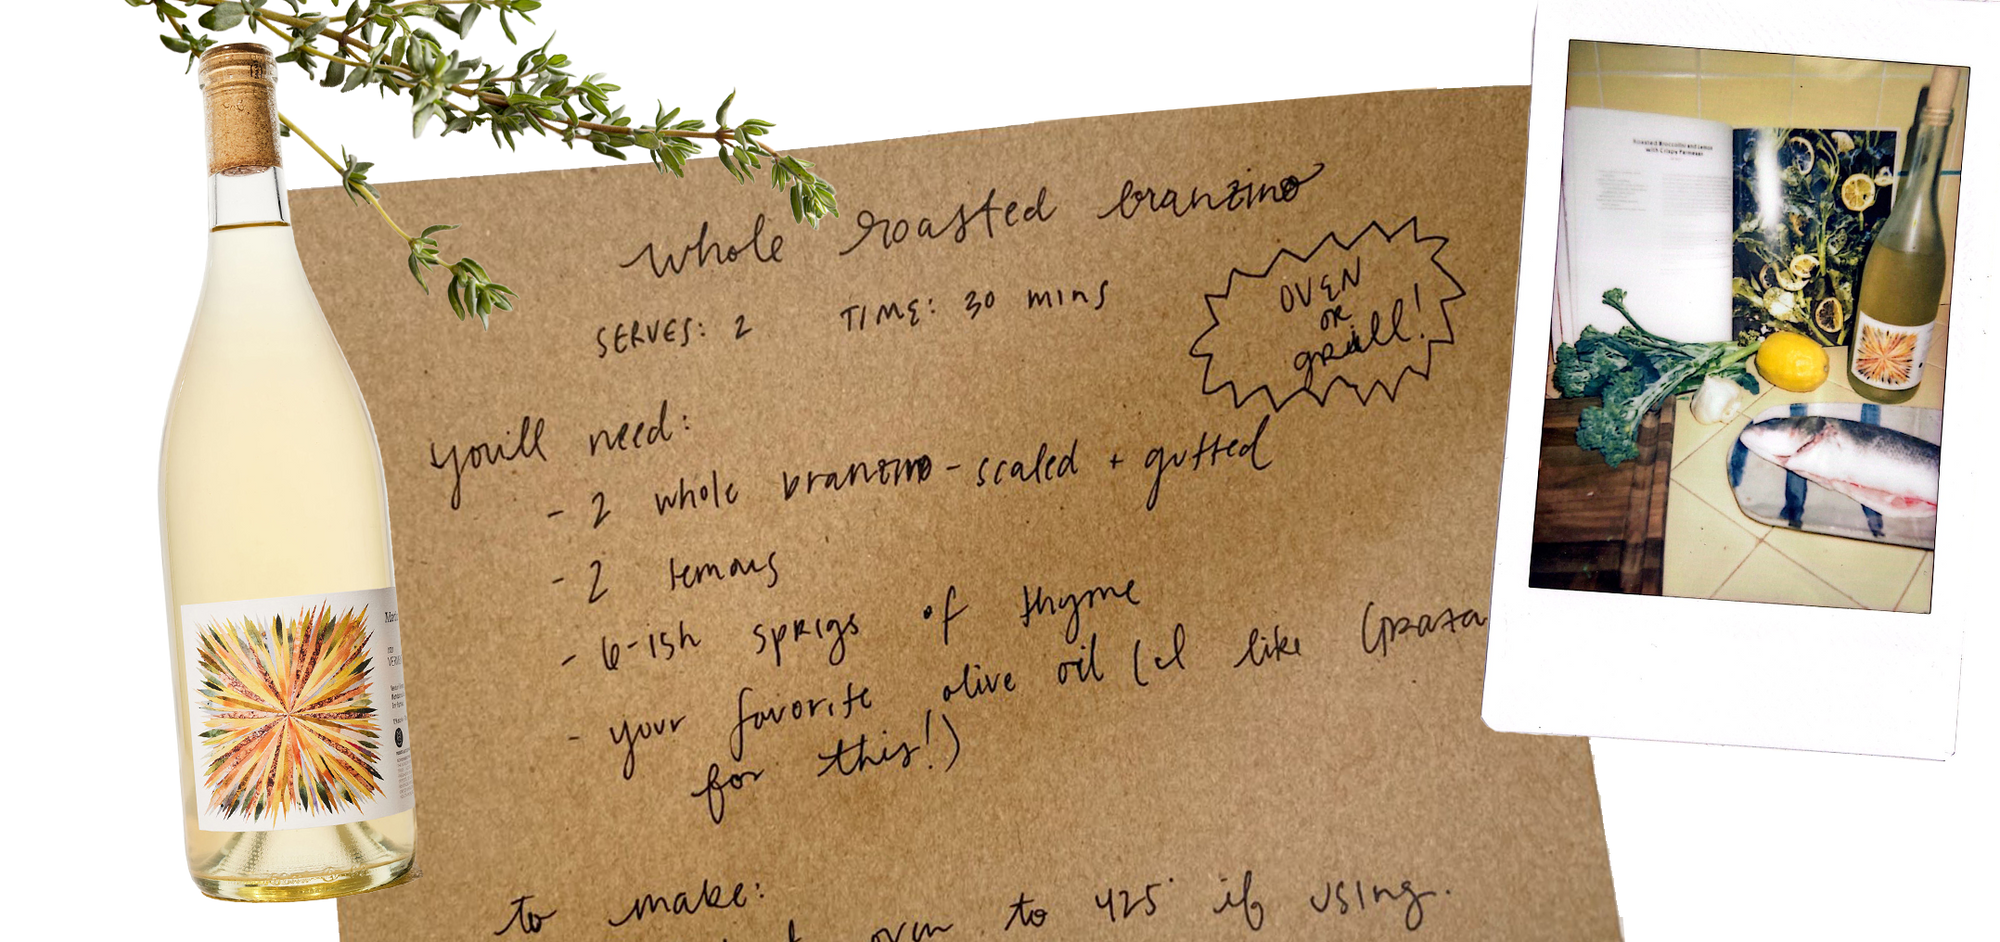 whole roasted branzino
SERVES: 2 TIME: 30 mins
OVEN
OR
grill!
you'll need:
- 2 whole branzino - scaled + gutted
- 2 lemons
- 6-ish sprigs of thyme
- your favorite olive oil (I like Graza
for this!)
to make:
oven to 425° if using.
Roasted Broccolini and Lemon
with Crispy Parmesan